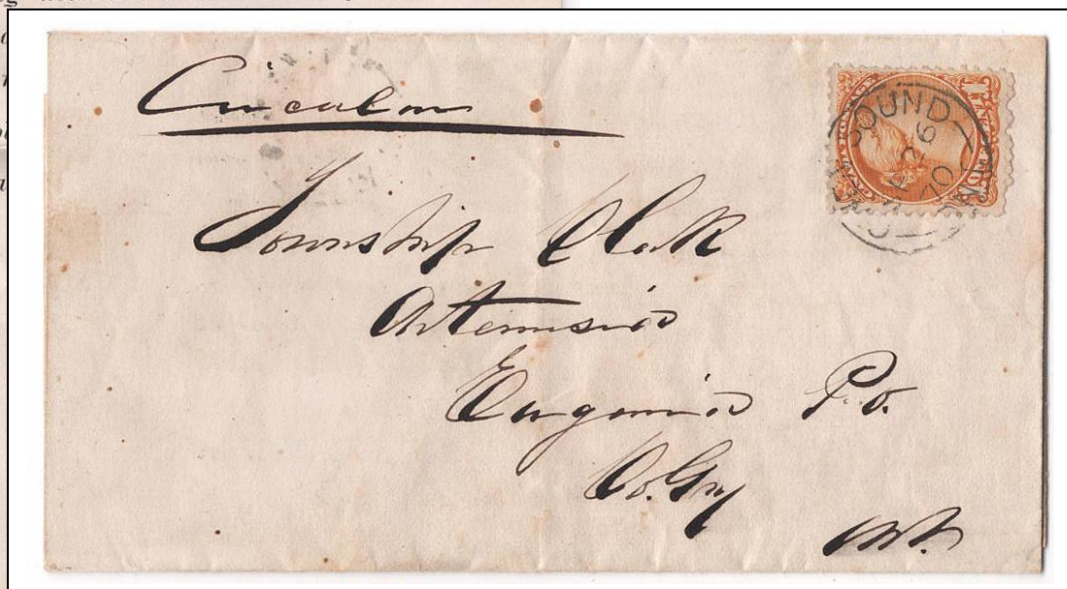 Circular
Township Clerk
Artemisia
Eugenia P.O.
Co. Grey
Ont.
SOUND
26
70